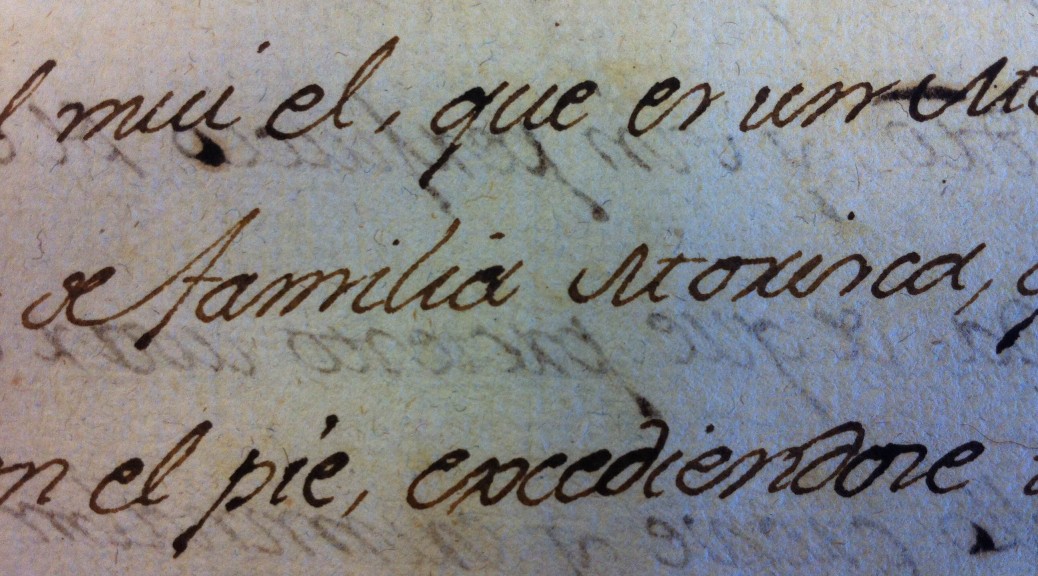 l mui el, que es un Mo
de familia Morisca, q
n el pie, excediendose